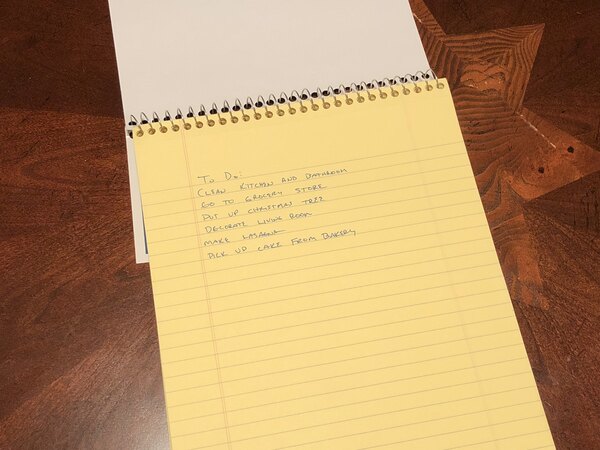 To Do:
CLEAN KITCHEN AND BATHROOM
GO TO GROCERY STORE
PUT UP CHRISTMAS TREE
DECORATE LIVING ROOM
MAKE LASAGNA
PICK UP CAKE FROM BAKERY